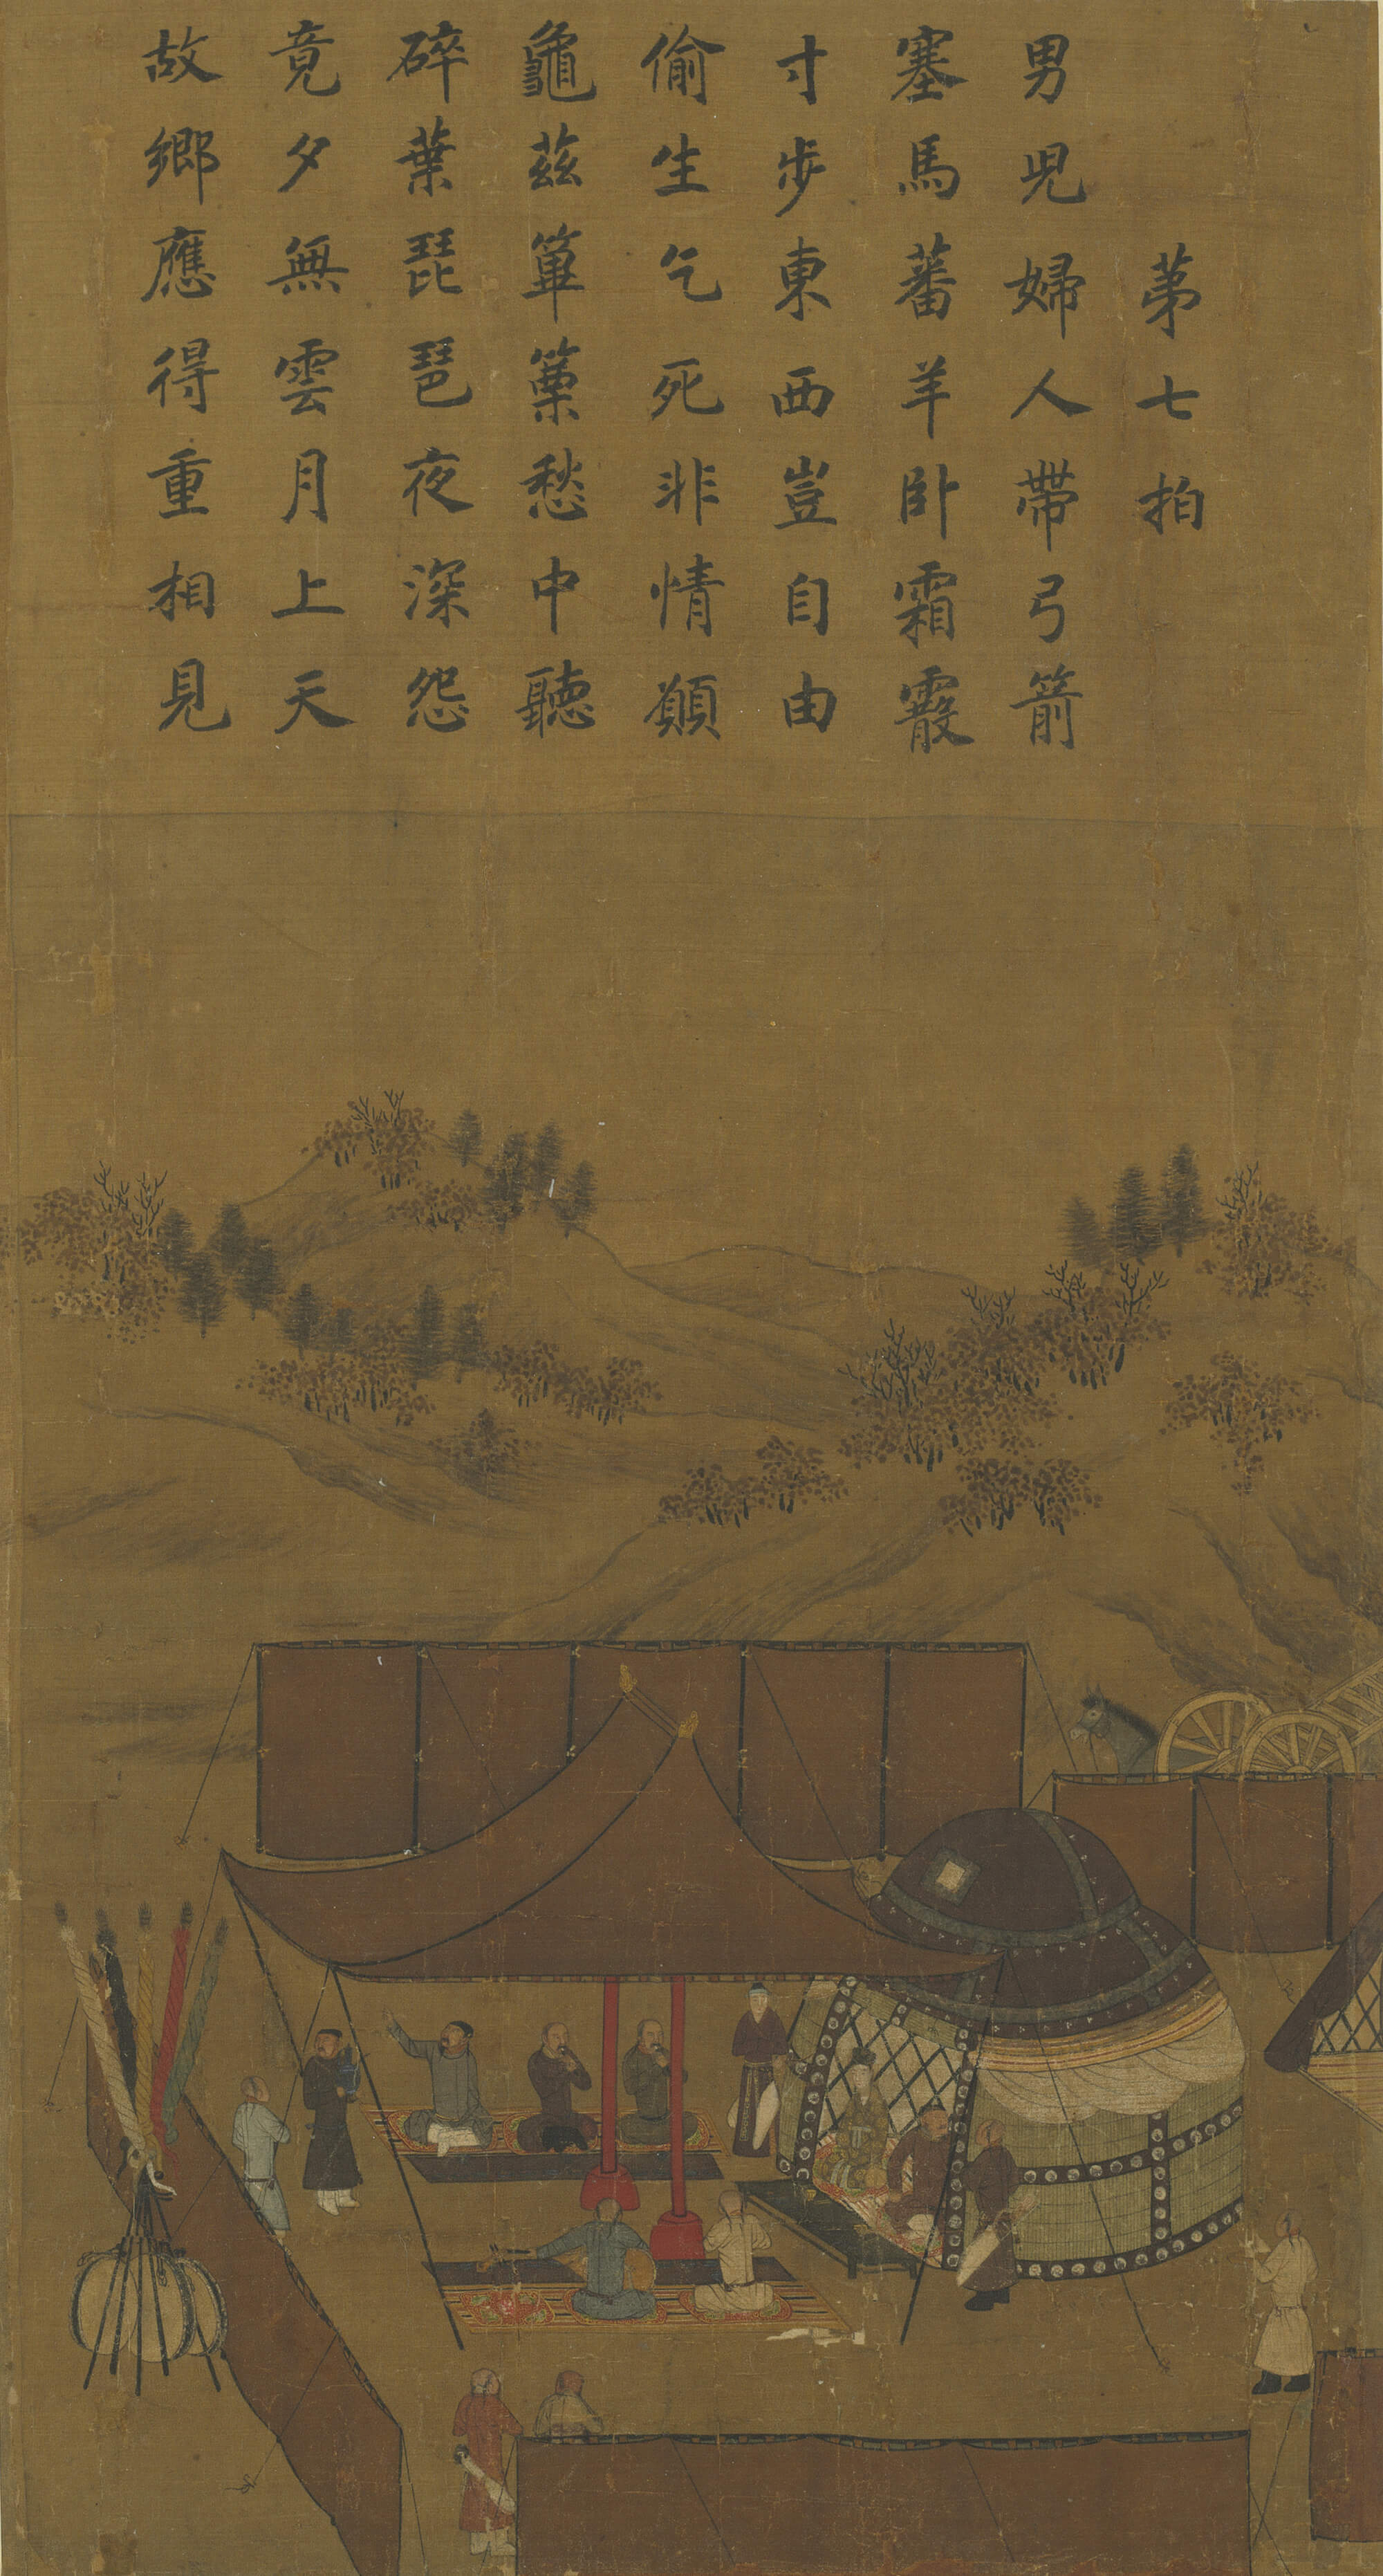 第七拍
男兒婦人帶弓箭
塞馬蕃羊臥霜霰
寸步東西豈自由
偷生乞死非情願
龜茲篳篥愁中聽
碎葉琵琶夜深怨
竟夕無雲月上天
故鄉應得重相見